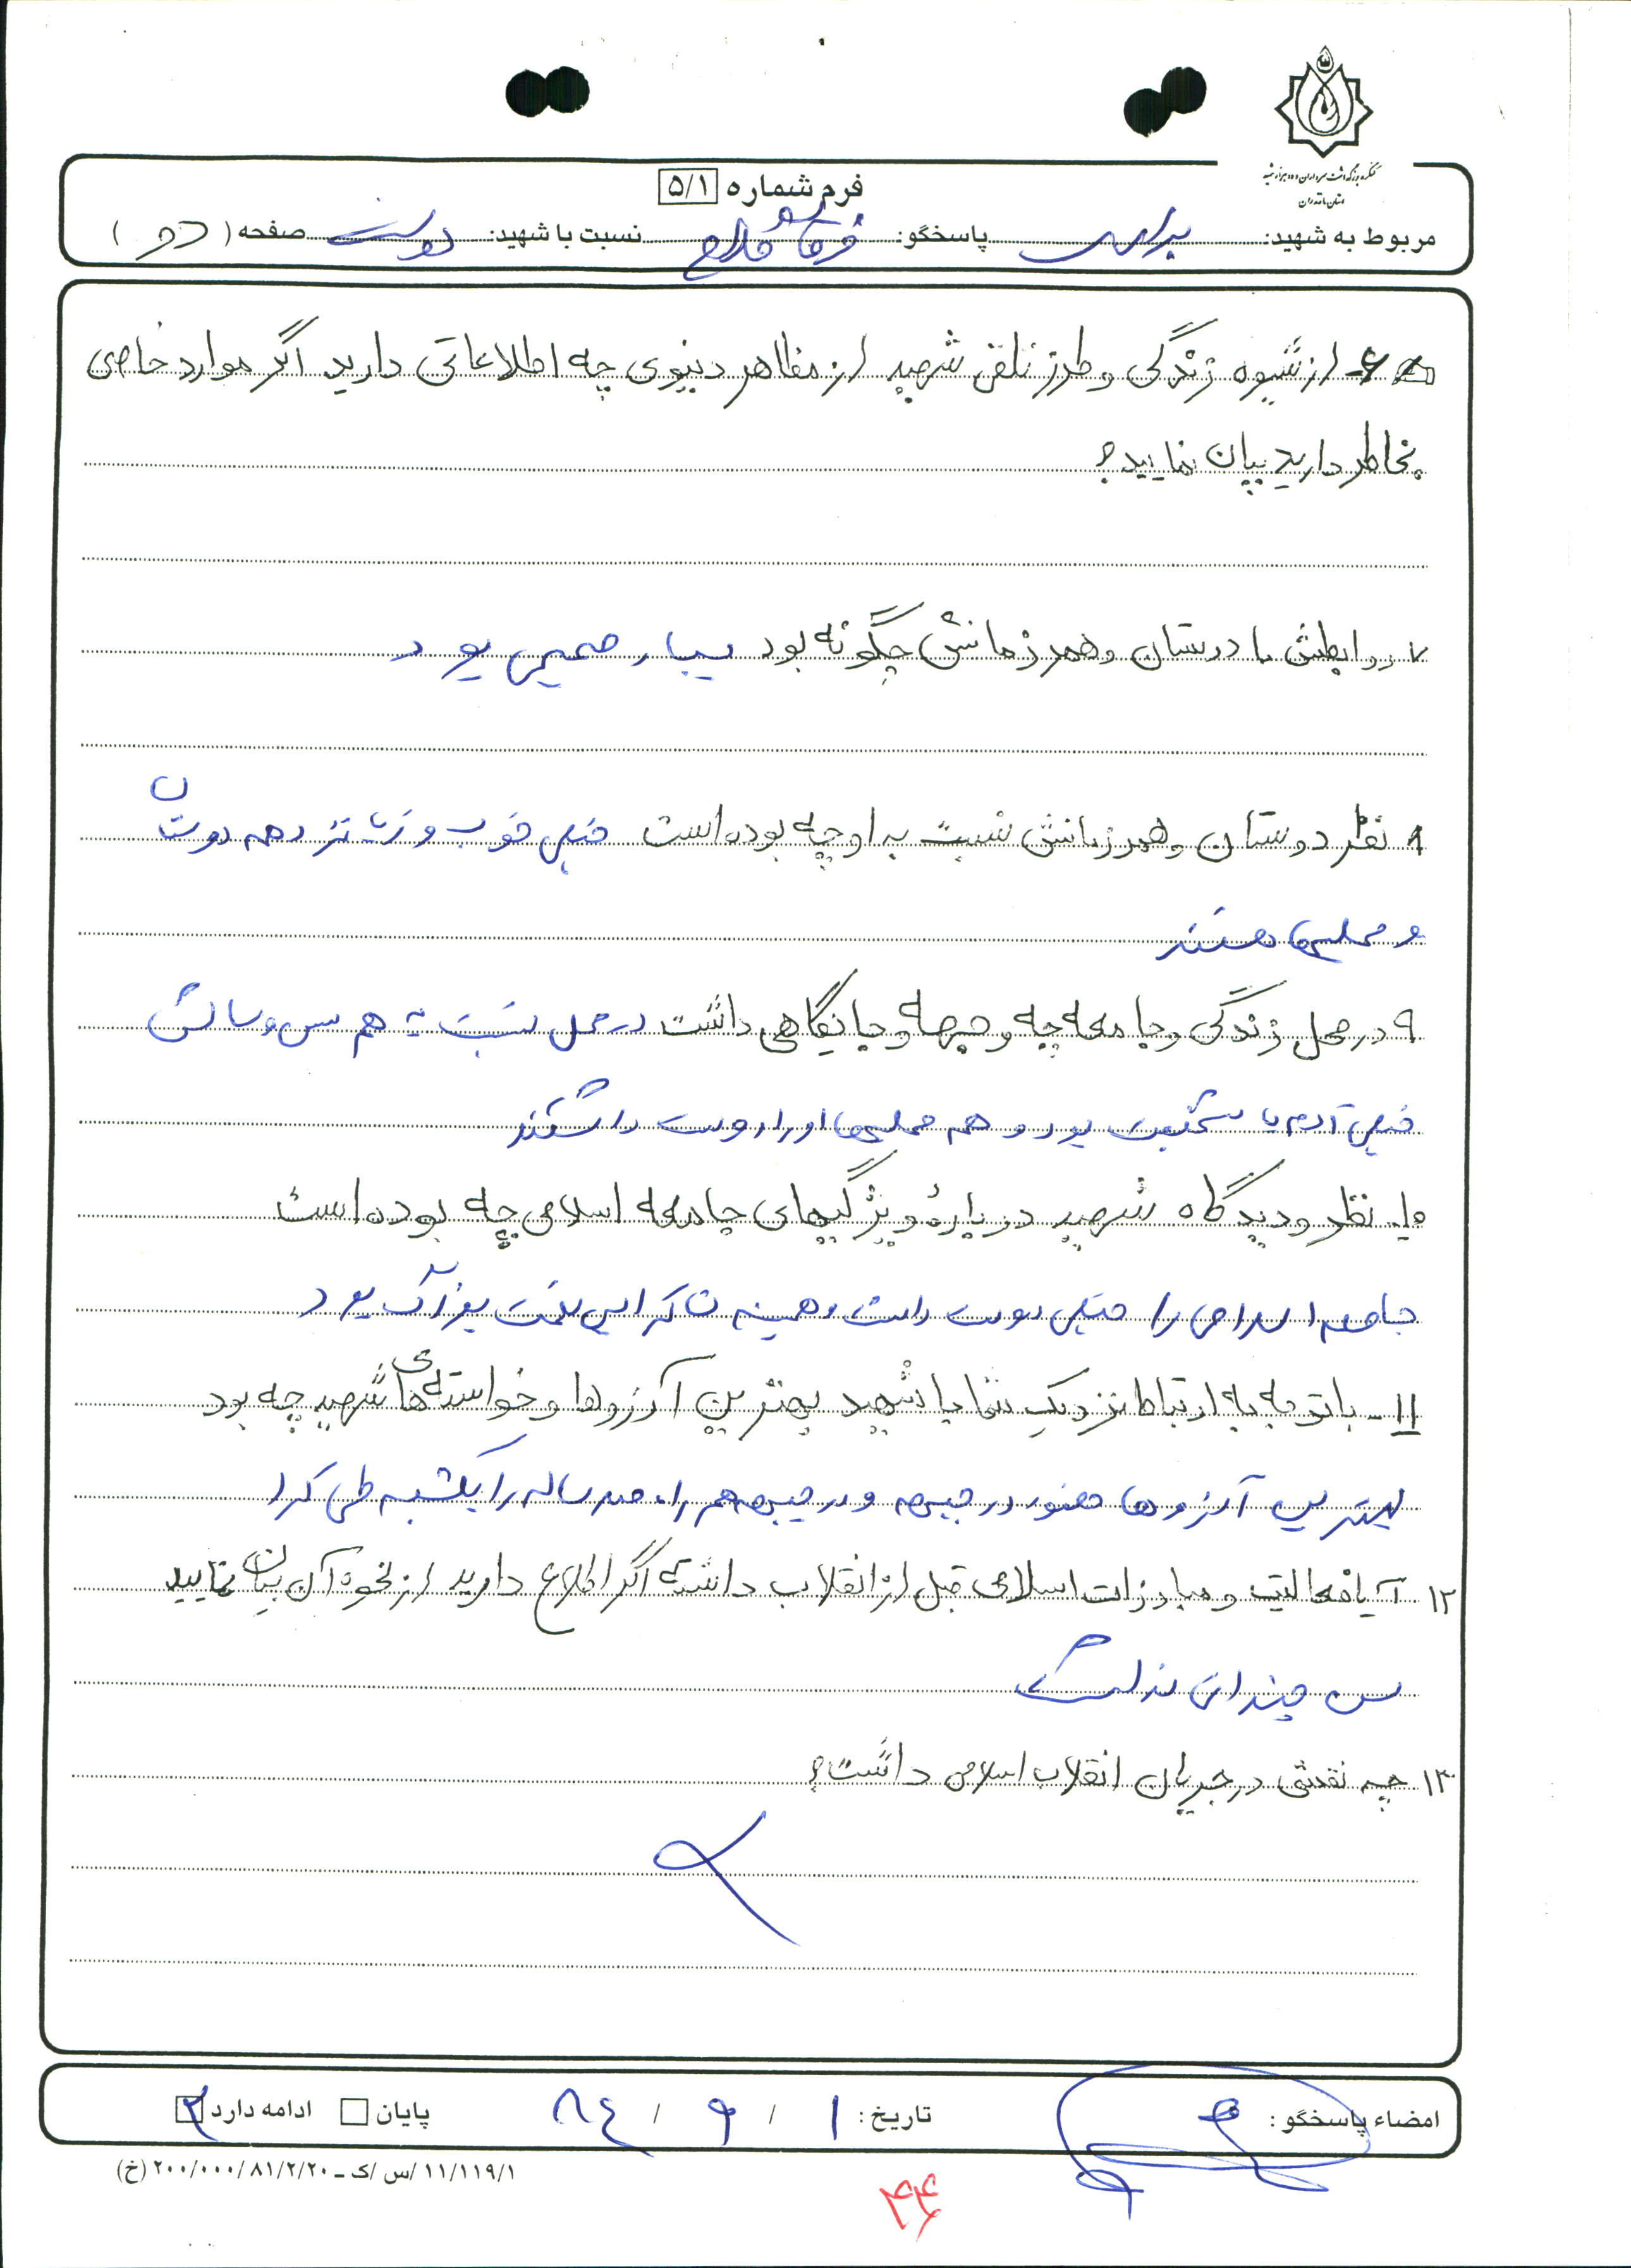 کنگره بزرگداشت سرداران و ده هزار شهید
استان مازندران
فرم شماره ۵/۱
مربوط به شهید: پاسخگو: نسبت با شهید: دوست صفحه (دو)
۶- از شیوه زندگی و طرز تلقی شهید از مظاهر دنیوی چه اطلاعاتی دارید اگر موارد خاصی
بخاطر دارید بیان نمایید؟
۷ روابطش با دوستان و همرزمانش چگونه بود بسیار صمیمی بود
۸ نظر دوستان و همرزمانش نسبت به او چه بوده است خیلی خوب و زبانزد همه دوستان
و محلیها هستند
۹ در محل زندگی و جامعه چه وجهه و جایگاهی داشت در محل نسبت به هم سن و سالش
خیلی آدم با شخصیت بود و هم محلیها او را دوست داشتند
۱۰- نظر و دیدگاه شهید درباره ویژگیهای جامعه اسلامی چه بوده است
جامعه اسلامی را خیلی دوست داشت و همیشه شاکر این نعمت بزرگ بود
۱۱- با توجه به ارتباط نزدیک شما با شهید بهترین آرزوها و خواسته‌های شهید چه بود
بهترین آرزوها حضور در جبهه و در جبهه هم راه صد ساله را یکشبه طی کرد
۱۲ آیا فعالیت و مبارزات اسلامی قبل از انقلاب داشته اگر اطلاع دارید از نحوه آن بیان نمایید
سن چندانی نداشت
۱۳ چه نقشی در جریان انقلاب اسلامی داشت؟
امضاء پاسخگو: تاریخ: ۱ / ۹ / ۸۴ پایان ادامه دارد
۱۱/۱۱۹/۱ /س /ک ـ ۲۰۰/۰۰۰/۸۱/۲/۲۰ (خ)
۴۴۶